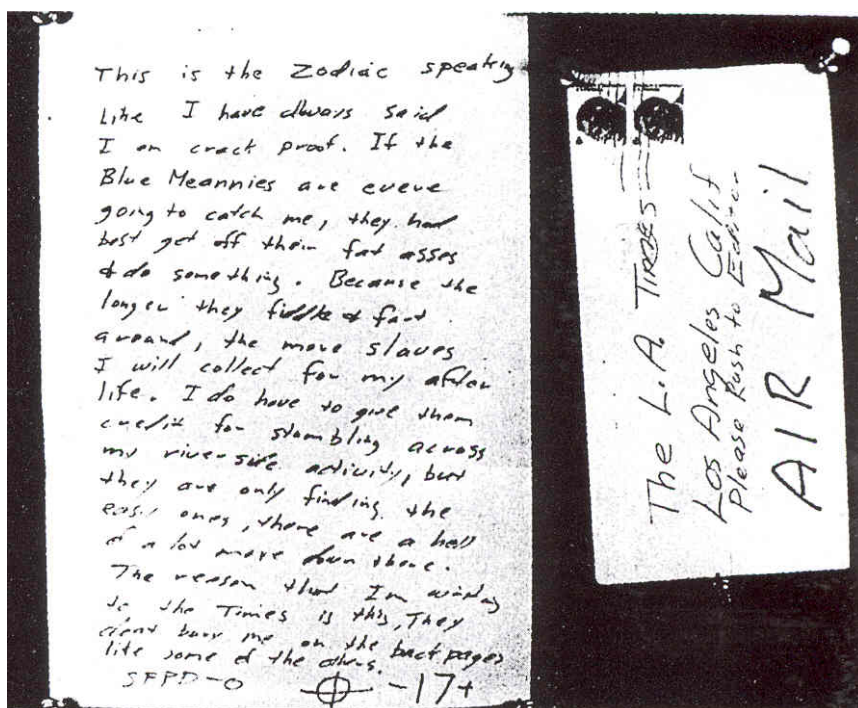 This is the Zodiac speaking
Like I have always said
I am crack proof. If the
Blue Meannies are evere
going to catch me, they had
best get off their fat asses
& do something. Because the
longer they fiddle & fart
around, the more slaves
I will collect for my after
life. I do have to give them
credit for stumbling across
my riverside activity, but
they are only finding the
easy ones, there are a hell
of a lot more down there.
The reason that Im writing
to the Times is this, They
dont bury me on the back pages
like some of the others.
SFPD-0 -17+
The L.A. Times
Los Angeles Calif
Please Rush to Editor
AIR Mail